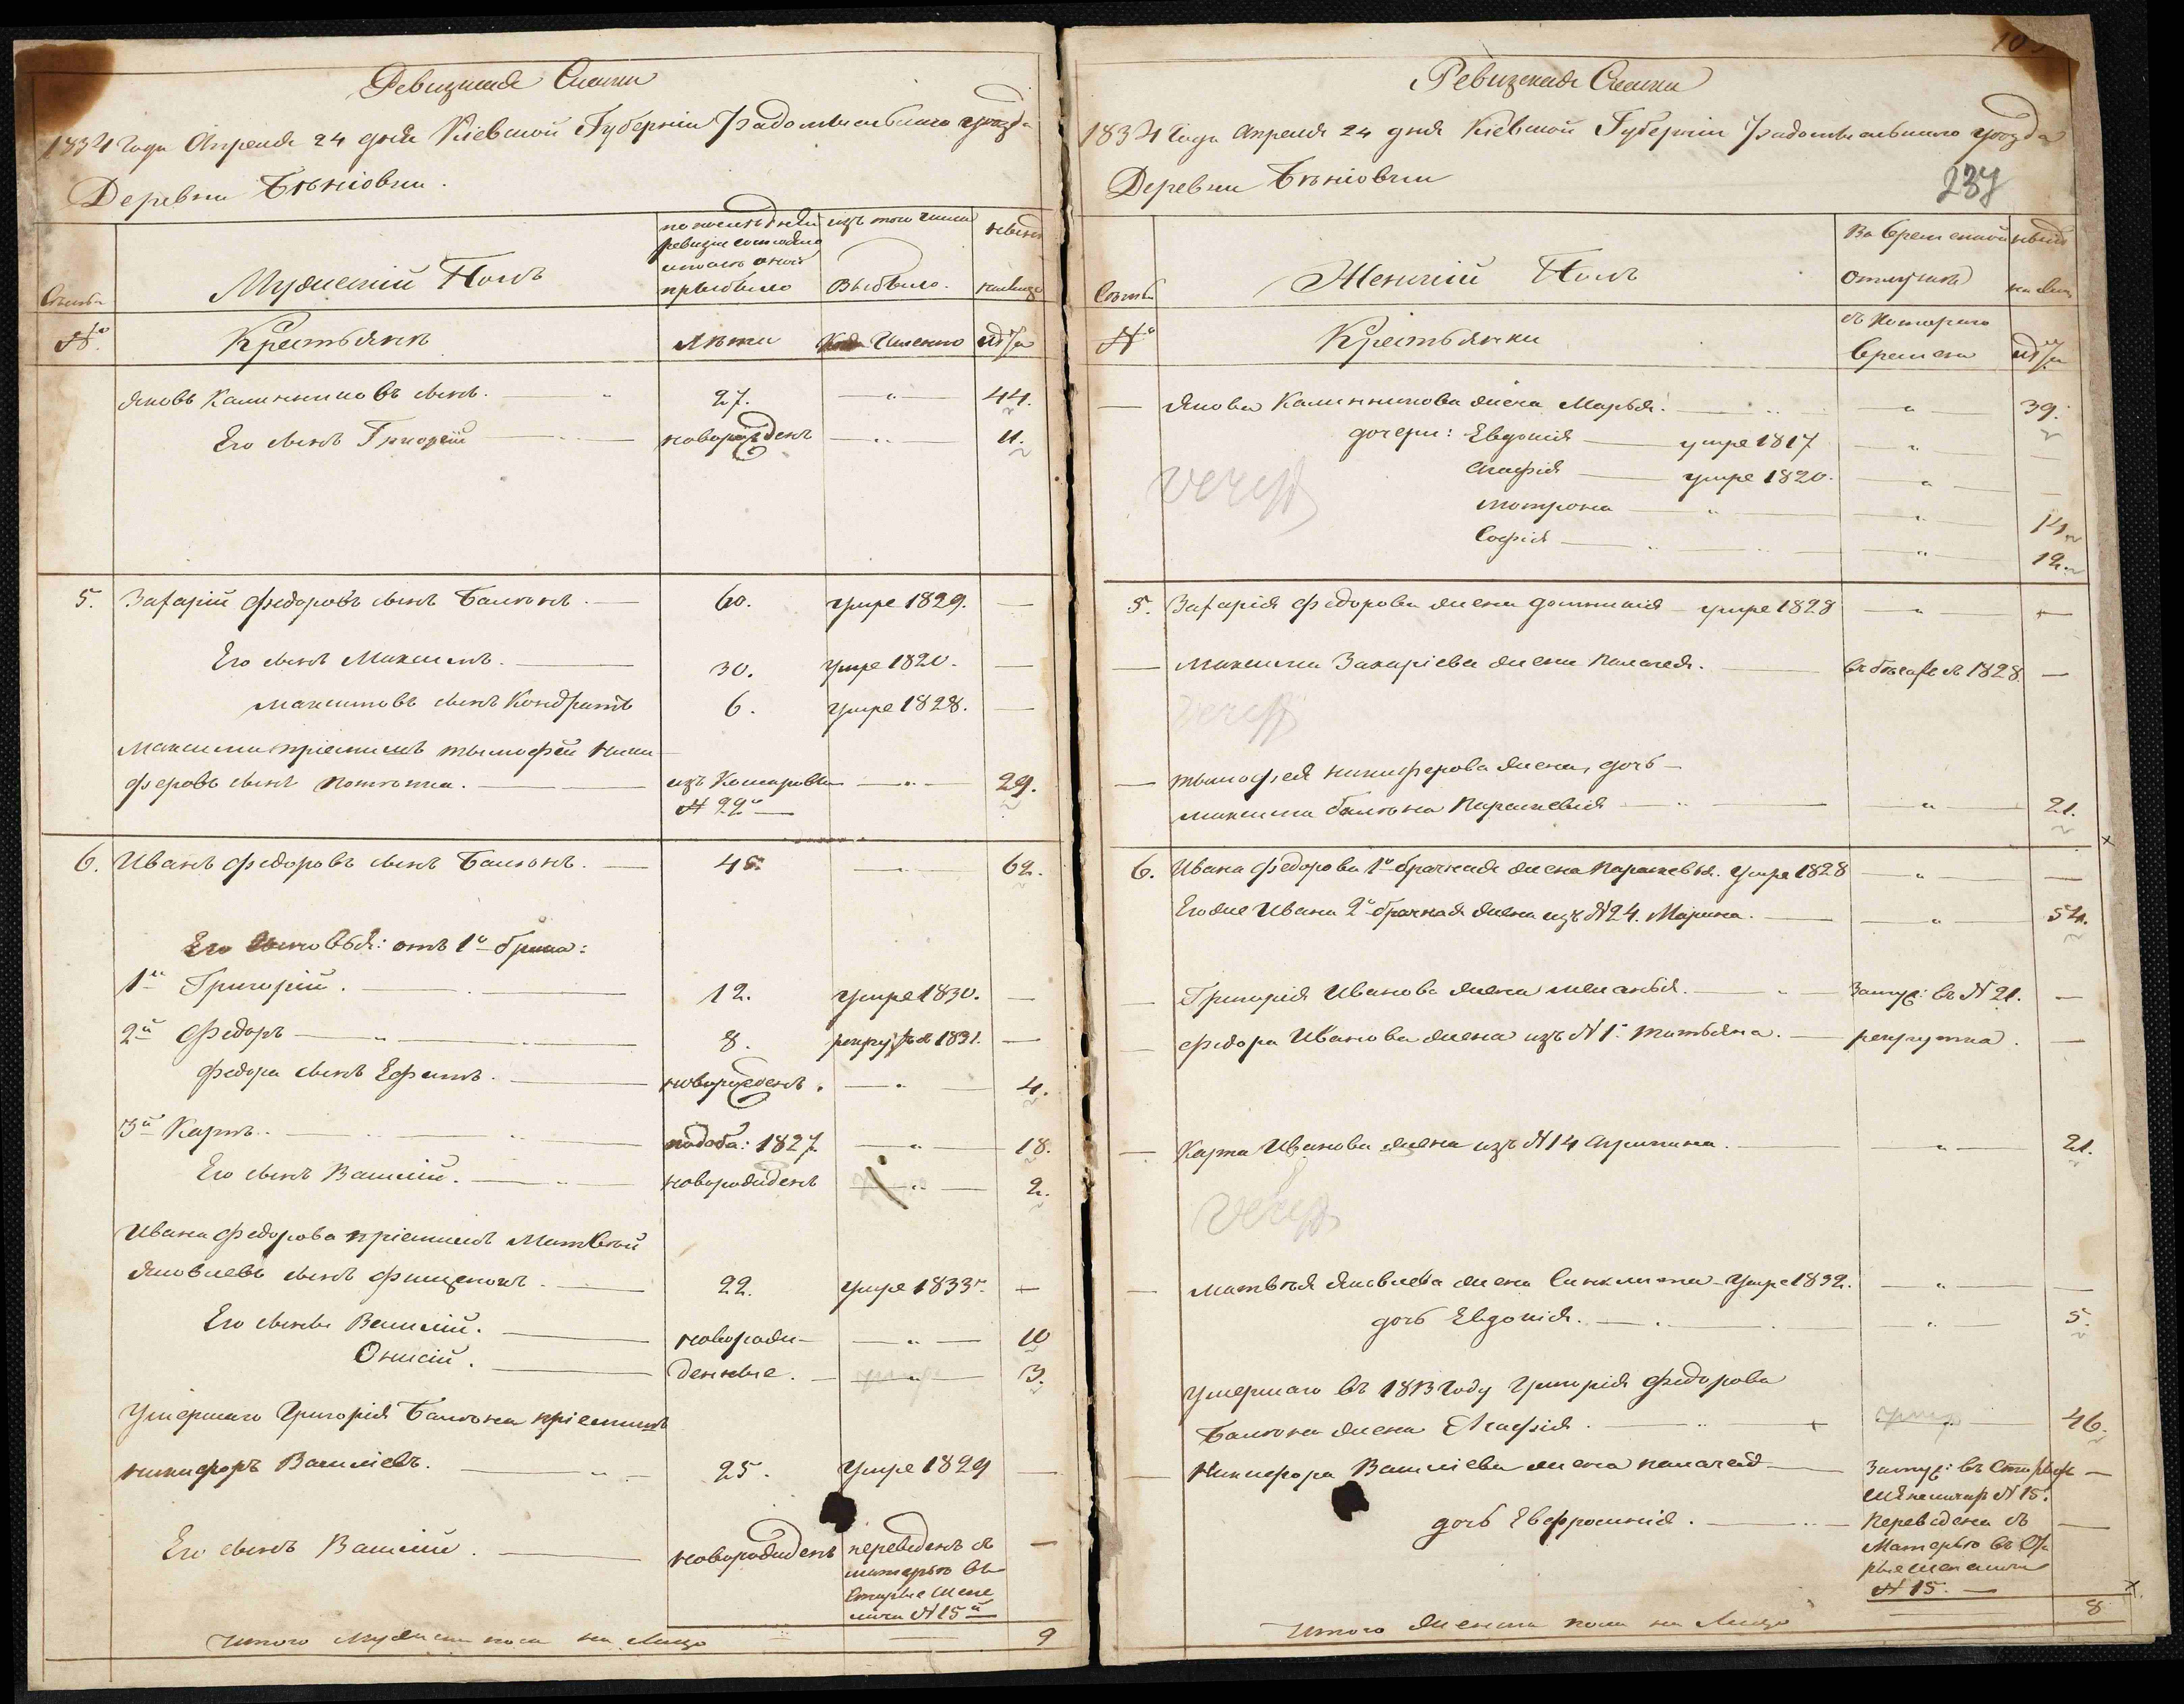 Ревизская Сказка
1834 Года Апреля 24 дня Кіевской Губерніи Радомысльскаго уезда
Деревни
Семьи
Мужескій Полъ
по последней ревизіи состояло и после оной прыбыло
изъ того числа Выбыло.
ныне на лицо
№
Крестьяне
лета
Когда Именно
Яковъ Калинниковъ сынъ. 27. " 44.
Его сынъ Григорій новорожденъ " 11.
5. Захарій Федоровъ сынъ 60. умре 1829. —
Его сынъ Максимъ. 30. умре 1820. —
Максимовъ сынъ Кондратъ 6. умре 1828. —
Максима пріемышъ тымофей ники
феровъ сынъ изъ Комаровки " 29.
№ 22
6. Иванъ Федоровъ сынъ 45. 62.
Его сыновья: отъ 1го брака:
1й Григорій. 12. умре 1830. —
2й Федоръ 8. 1831. —
Федора сынъ Ефимъ. новорожденъ. " 4.
3й Карпъ. 1827. " 18.
Его сынъ Василій. новорожденъ " 2.
Ивана Федорова пріемышъ Матвей
Яковлевъ сынъ 22. умре 1833. —
Его сыны Василій. новорож- " 10
Онисій. денные. " 3.
Умершаго Григорія пріемышъ
никифоръ Василіевъ. 25. Умре 1829 —
Его сынъ Василій. новорожденъ переведенъ съ —
матерью въ
Старые Шепе
личи № 15й
Итого Мужеска пола на Лицо 9
Ревизская Сказка
1834 Года Апреля 24 дня Кіевской Губерніи Радомысльскаго уезда
Деревни
237
Семьи
Женскій Полъ
Во временной отлучке
ныне на лицо
№
Крестьянки
съ котораго времени
— Якова Калинникова жена Марья. " 39.
дочери: Евдокія умре 1817 " —
Агафія умре 1820. " —
мотрона " " 14.
Софія " 12.
5. Захарія Федорова жена домникія умре 1828 " —
— Максима Захаріева жена Палагея. въ бегахъ съ 1828. —
— тымофея никиферова жена, дочь
Максима Параскевия " 21.
6. Ивана Федорова 1о брачная жена Параскевья. умре 1828 " —
Его же Ивана 2о брачная жена изъ № 24. Марина. " 54.
— Григорія Иванова жена меланья. Замуж: въ № 21. —
— Федора Иванова жена изъ № 1. татьяна. рекрутка. —
— Карпа Иванова жена изъ № 14 Агрипина. " 21.
— матвея Яковлева жена Синклита умре 1832. " —
дочь Евдокія. " 5.
Умершаго въ 1813 году Григорія Федорова
жена Агафія. 46.
— Никифора Василіева жена палагея Замуж: въ Старые —
№ 15.
дочь Евфросинія. Переведена съ —
Матерью въ Ста
рые
№ 15.
Итого Женска пола на Лицо 8